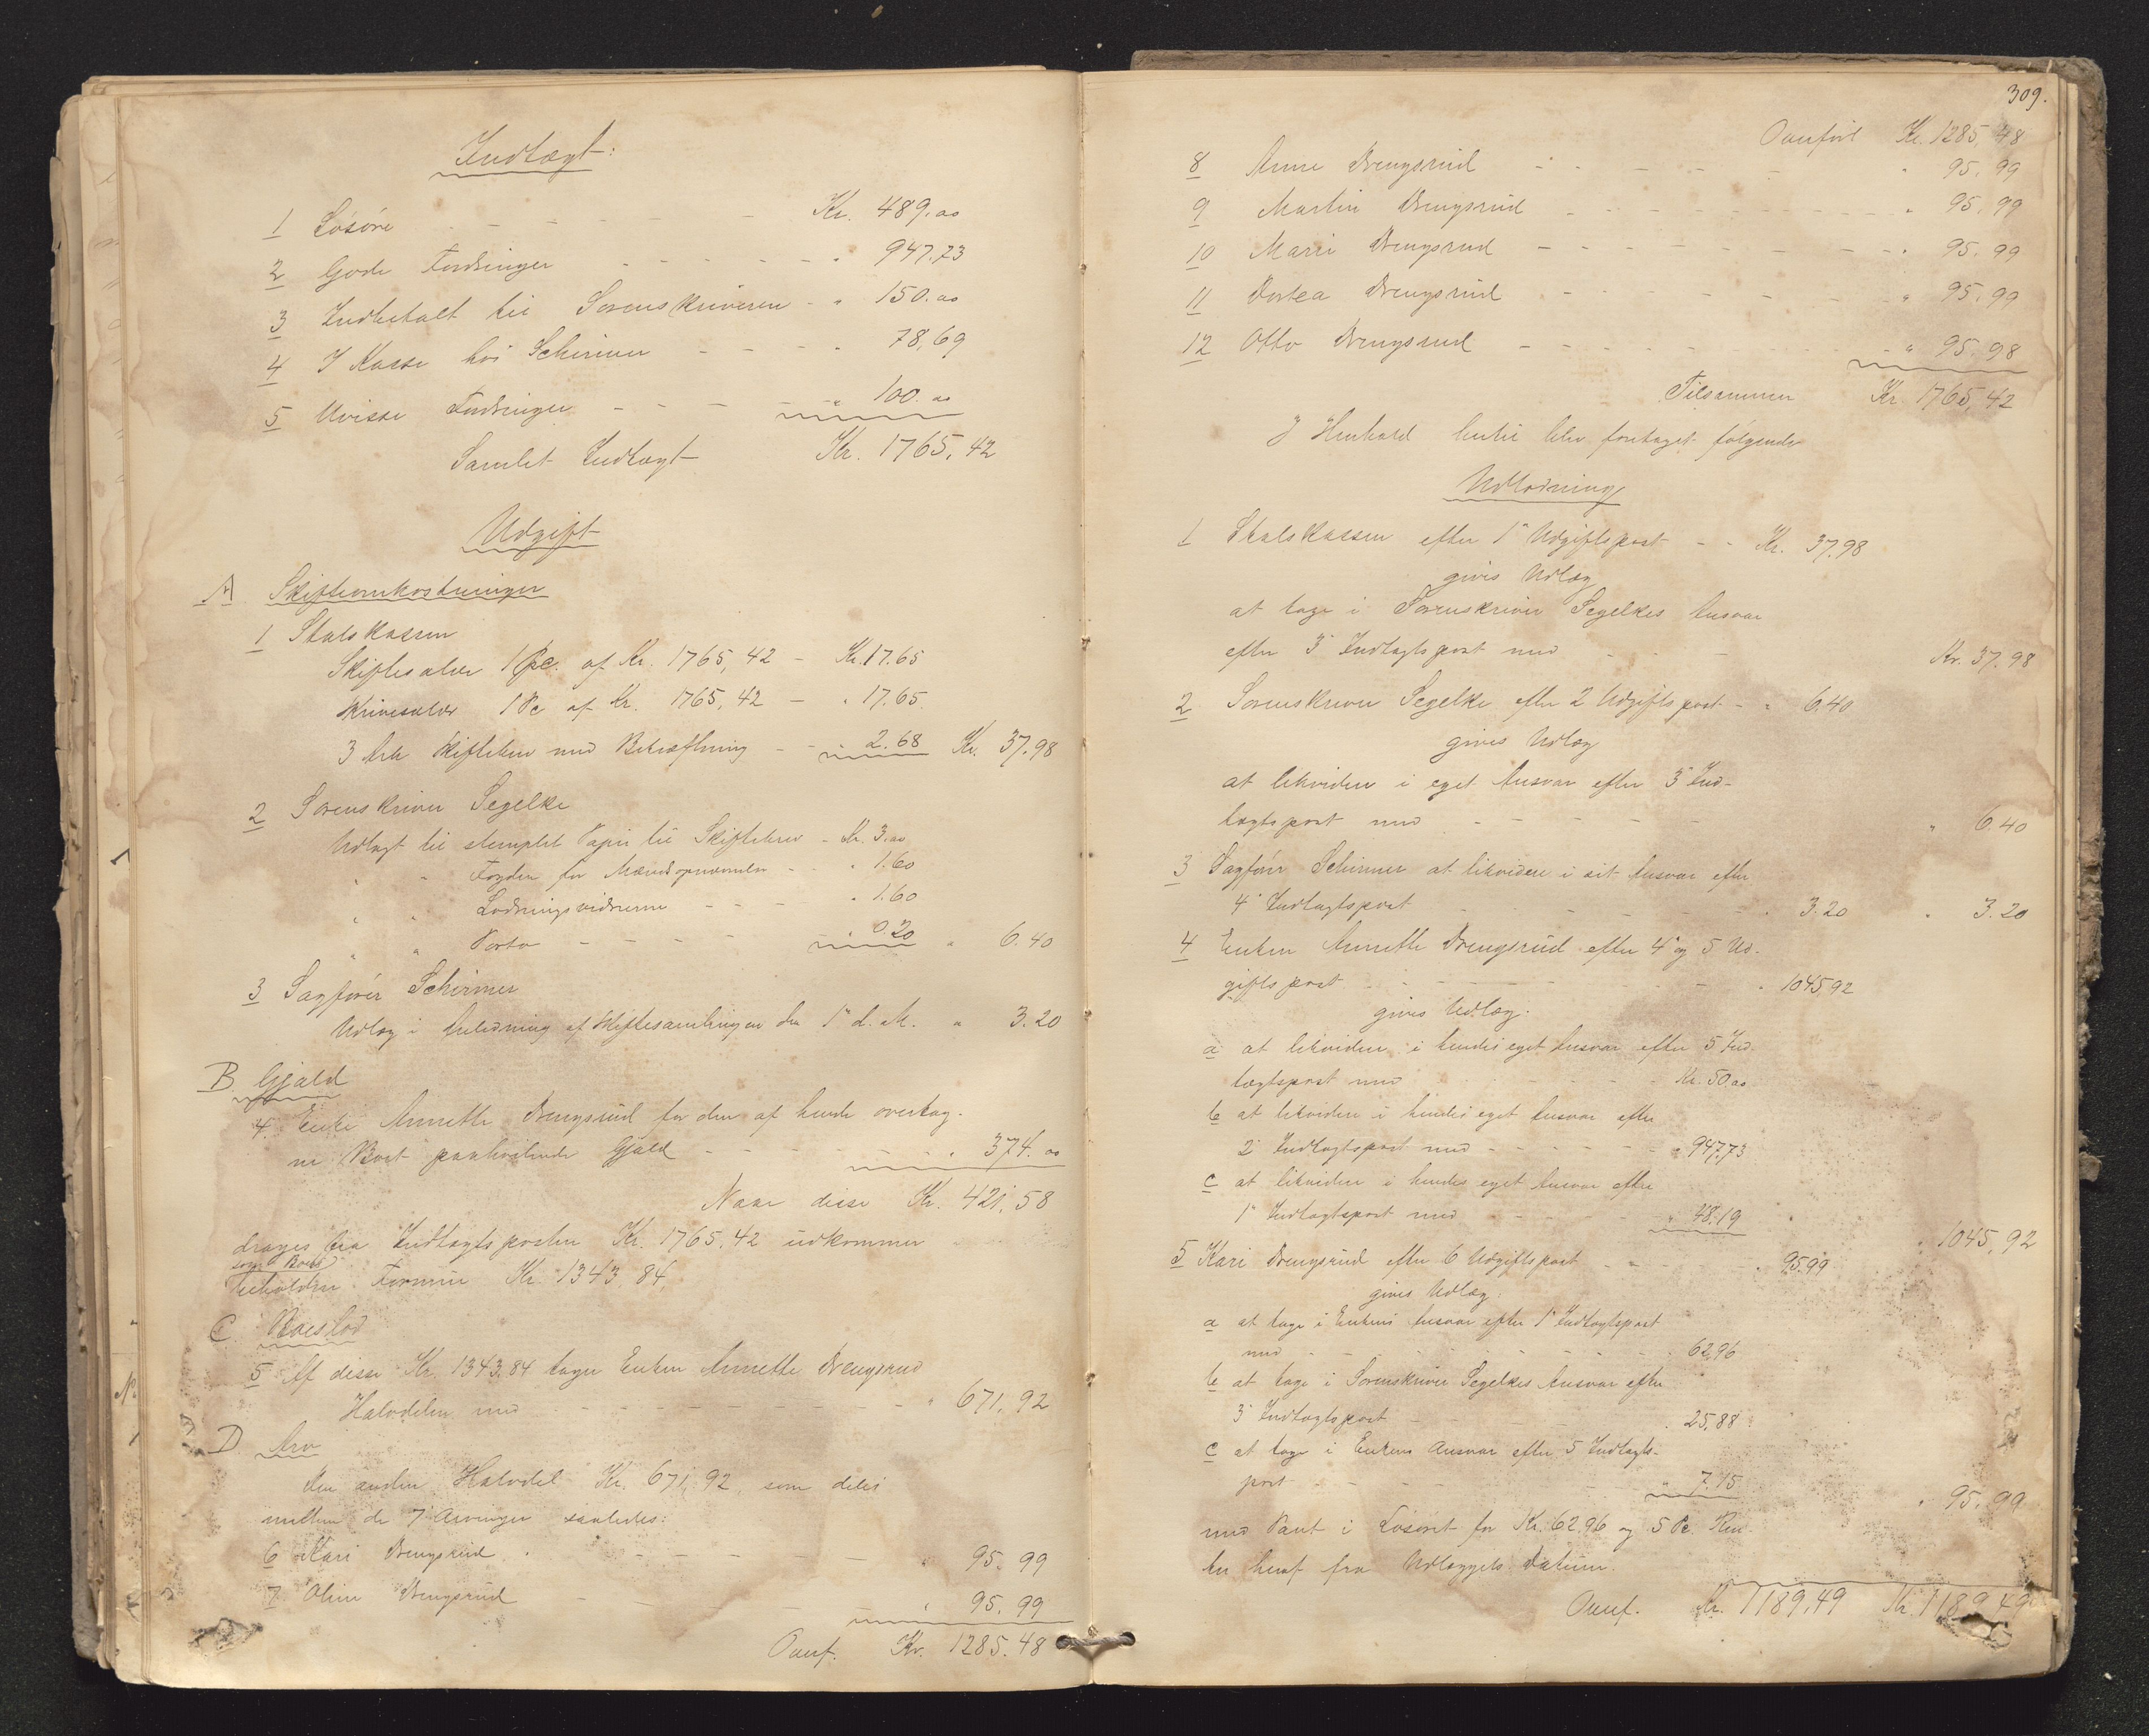 Indtægt:
1 Løsøre - - - - - Kr. 489.00
2 Gode Fordringer - - - - - " 947.73
3 Indbetalt til Sorenskriveren - " 150.00
4 I Kasse hos Schirmer - - - - " 78,69
5 Uvisse Fordringer - - - - " 100.00
Samlet Indtægt Kr. 1765,42
Udgift
A Skifteomkostninger
1 Statskassen
Skiftesalær 1 Pc. af Kr. 1765,42 - Kr. 17.65
Skrivesalær 1 Pc af Kr. 1765,42 - " 17.65
3 Ark Skiftebrev med Bekræftning - - " 2.68 Kr. 37.98
2 Sorenskriver Segelke
Udlagt til stemplet Papir til Skiftebrev - Kr. 3.00
" " Fogden for Mændsopnævnelse - - " 1.60
" " Lodningsvidnerne - - - " 1.60
" " Porto - - - - " 0.20 " 6.40
3 Sagfører Schirmer
Udlæg i Anledning af Skiftesamlingen den 1ste d. M. " 3.20
B. Gjæld
4. Enke Annette Drengsrud for den af hende overtag-
ne Boet paahvilende Gjæld - - - - - " 374.00
Naar disse Kr. 421,58
drages fra Indtægtsposten Kr. 1765,42 udkommer
som Boets
beholdne Formue Kr. 1343,84,
C. Boeslod
5 Af disse Kr. 1343,84 tager Enken Annette Drengsrud
Halvdelen med - - - - - - - - " 671,92
D. Arv
Den anden Halvdel Kr. 671,92, som deles
mellem de 7 Arvinger saaledes:
6 Kari Drengsrud - - - - - " 95.99
7 Oline Drengsrud - - - - " 95.99
Overf. Kr. 1285.48
309.
Overført Kr. 1285,48
8 Anne Drengsrud - - - - - " 95.99
9 Martin Drengsrud - - - - - " 95.99
10 Marri Drengsrud - - - - - " 95.99
11 Dortea Drengsrud - - - - - " 95.99
12 Otto Drengsrud - - - - - " 95.98
Tilsammen Kr. 1765,42
I Henhold hertil blev foretaget følgende
Udlodning
1 Statskassen efter 1ste Udgiftspost - - Kr. 37.98
gives Udlæg
at tage i Sorenskriver Segelkes Ansvar
efter 3 Indtægtspost med - - - Kr. 37.98
2 Sorenskriver Segelke efter 2 Udgiftspost - " 6.40
gives Udlæg
at likvidere i eget Ansvar efter 3 Ind-
tægtspost med - - - - - " 6.40
3 Sagfører Schirmer at likvidere i sit Ansvar efter
4 Indtægtspost - - - - - " 3.20 " 3.20
4 Enken Annette Drengsrud efter 4 og 5 Ud-
giftspost - - - - - " 1045,92
gives Udlæg:
a at likvidere i hendes eget Ansvar efter 5 Ind-
tægtspost med - - - - - Kr. 50.00
b at likvidere i hendes eget Ansvar efter
2 Indtægtspost med - - - - - " 947.73
c at likvidere i hendes eget Ansvar efter
1 Indtægtspost med - - - - - " 48.19
" 1045,92
5 Kari Drengsrud efter 6 Udgiftspost - - - - " 95.99
gives Udlæg:
a at tage i Enkens Ansvar efter 1 Indtægtspost
med - - - - - " 62,96
b at tage i Sorenskriver Segelkes Ansvar efter
3 Indtægtspost - - - - " 25,88
c at tage i Enkens Ansvar efter 5 Indtægts-
post - - - - - " 7.15
" 95.99
med Pant i Løsøret for Kr. 62.96 og 5 Pc. Ren-
ter heraf fra Udlæggets Datum.
Overf. Kr. 1189,49 Kr. 1189,49